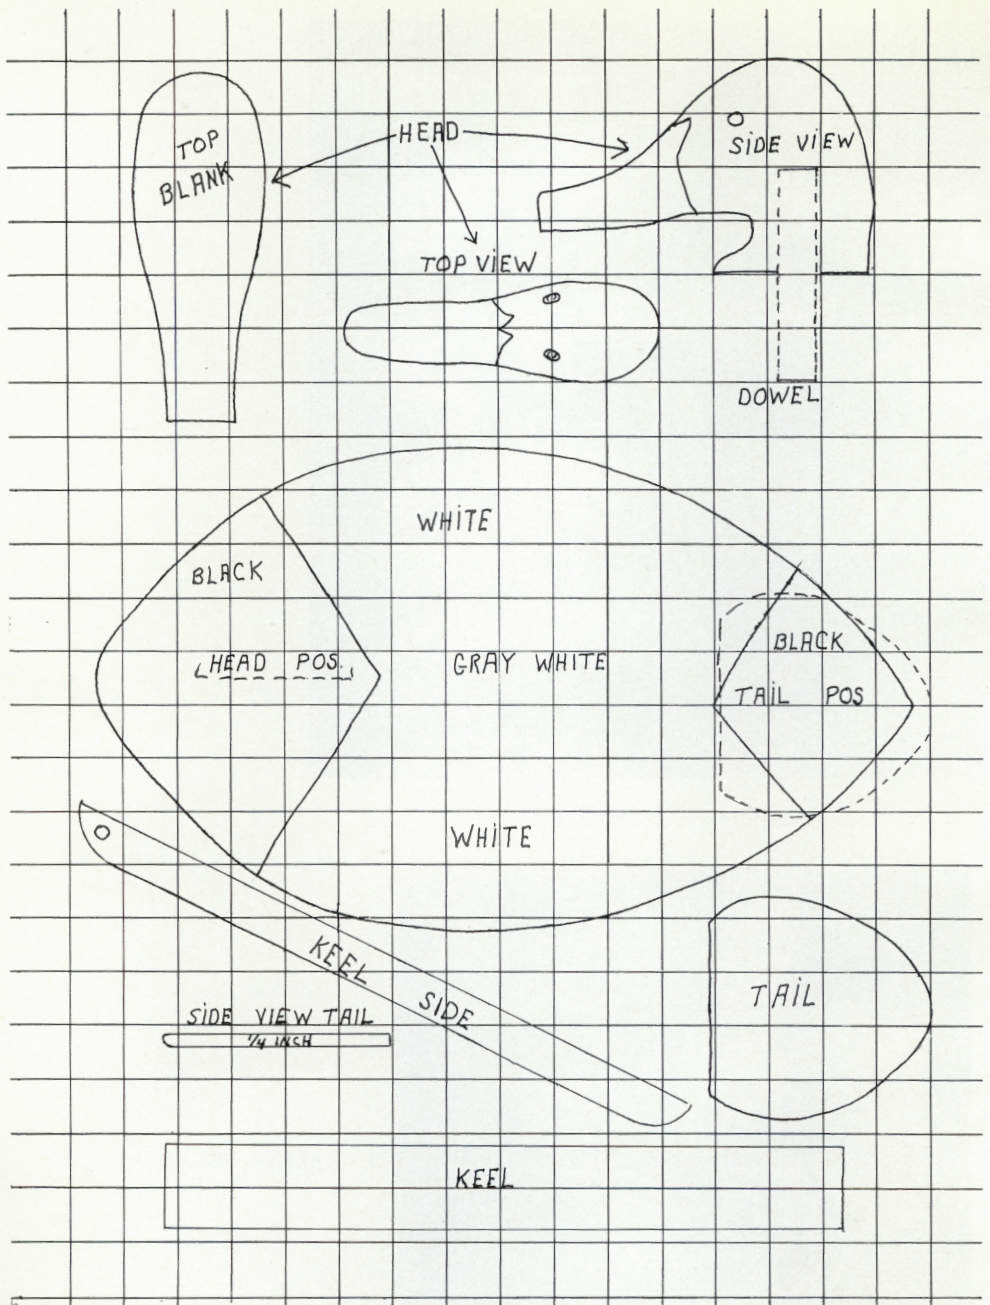 TOP
BLANK
HEAD
SiDE ViEW
TOP ViEW
DOWEL
WHiTE
BLACK
HEAD POS.
GRAY WHiTE
BLACK
TAiL POS
WHiTE
KEEL SIDE
TAiL
SiDE VIEW TAIL
1/4 INCH
KEEL